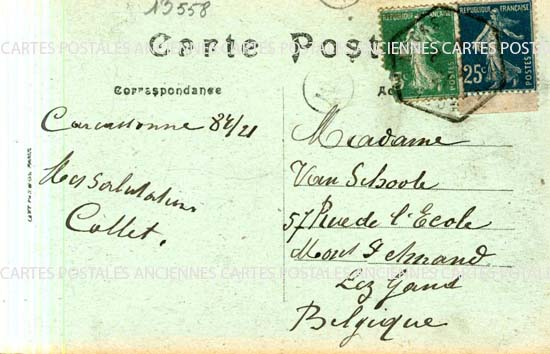 13558
Carte Postale
RÉPUBLIQUE FRANÇAISE
RÉPUBLIQUE FRANÇAISE
POSTES
25c POSTES
CARTES POSTALES ANCIENNES CARTES POSTALES ANCIENNES CARTES POST
Correspondance
Carcassonne 84/21
Mes Salutations
Collet.
Madame
Van Schoole
57 Rue de l'Ecole
Mont St Amand
Lez Gand
Belgique
CARTES POSTALES ANCIENNES CARTES POSTALES ANCIENNES CARTES POST